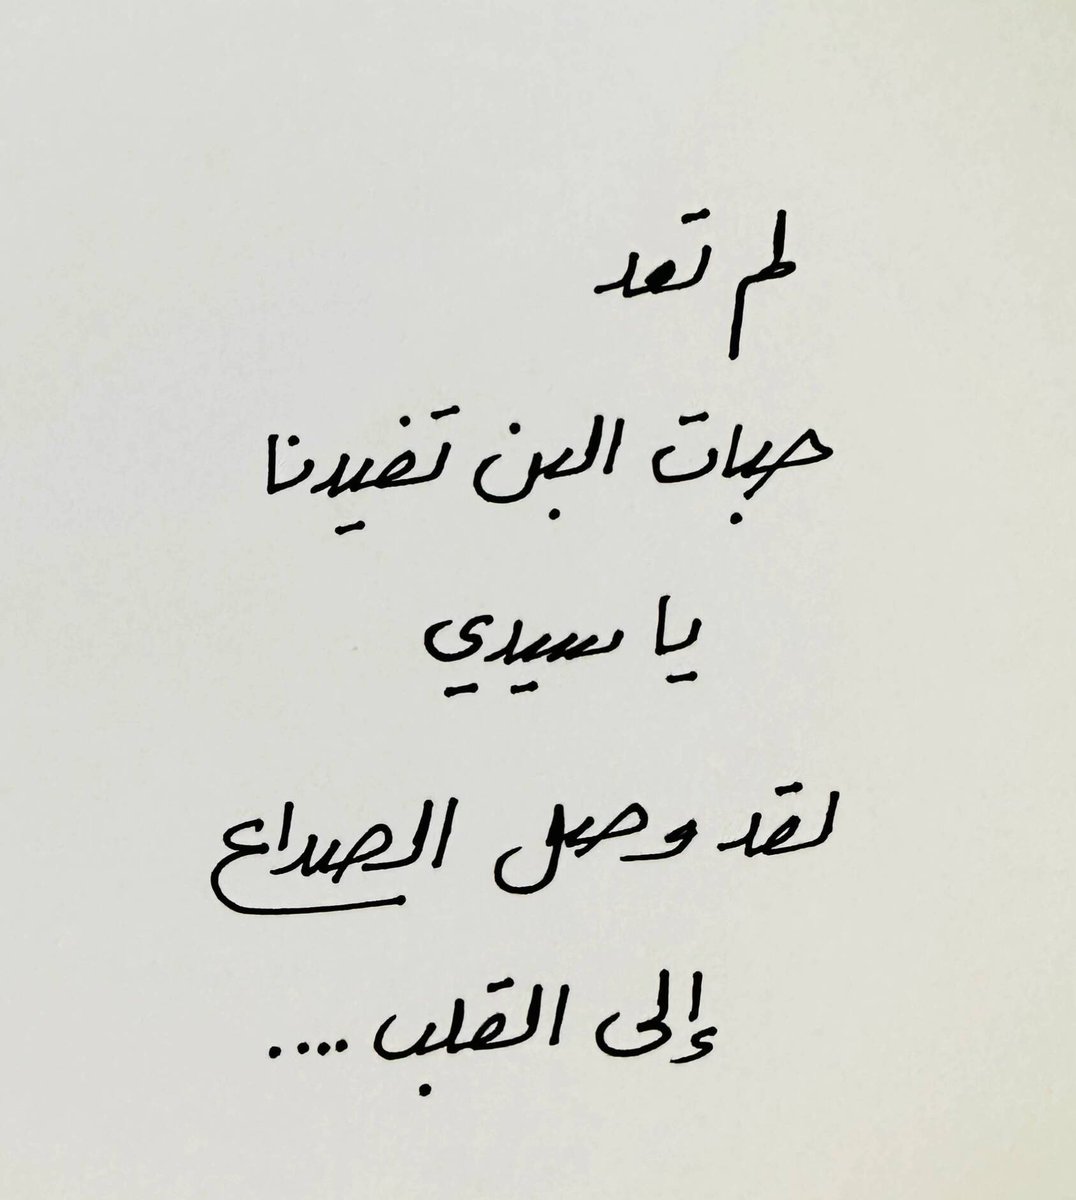 لم تعد
حبات البن تفيدنا
يا سيدي
لقد وصل الصداع
إلى القلب ....